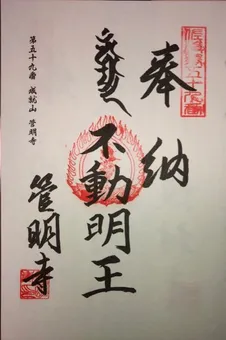 奉納
不動明王
第五十九番 成就山 管明寺
管明寺